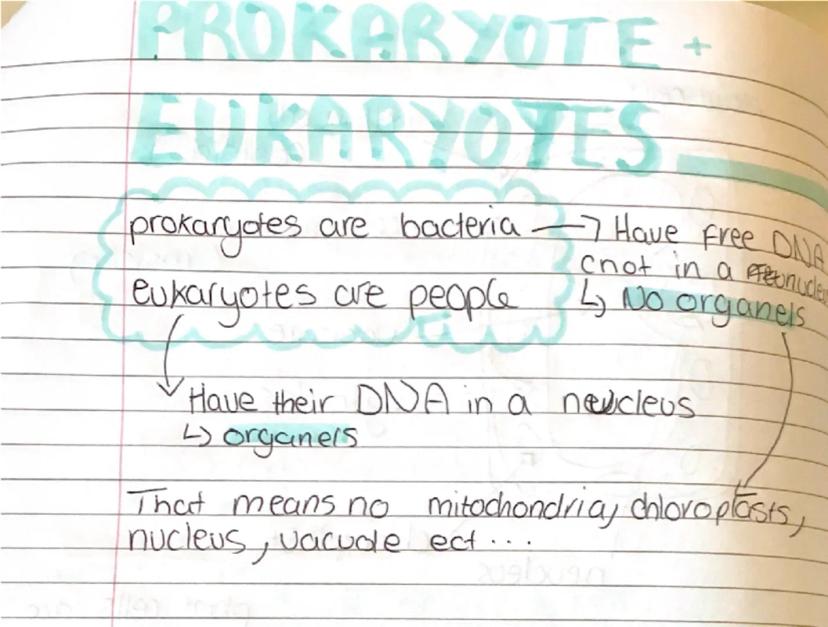 PROKARYOTE +
EUKARYOTES
prokaryotes are bacteria → Have free DNA
(not in a nucleu
eukaryotes are people
↳ No organels
Have their DNA in a neucleus
↳ organels
That means no mitochondria, chloroplasts,
nucleus, vacuole ect...